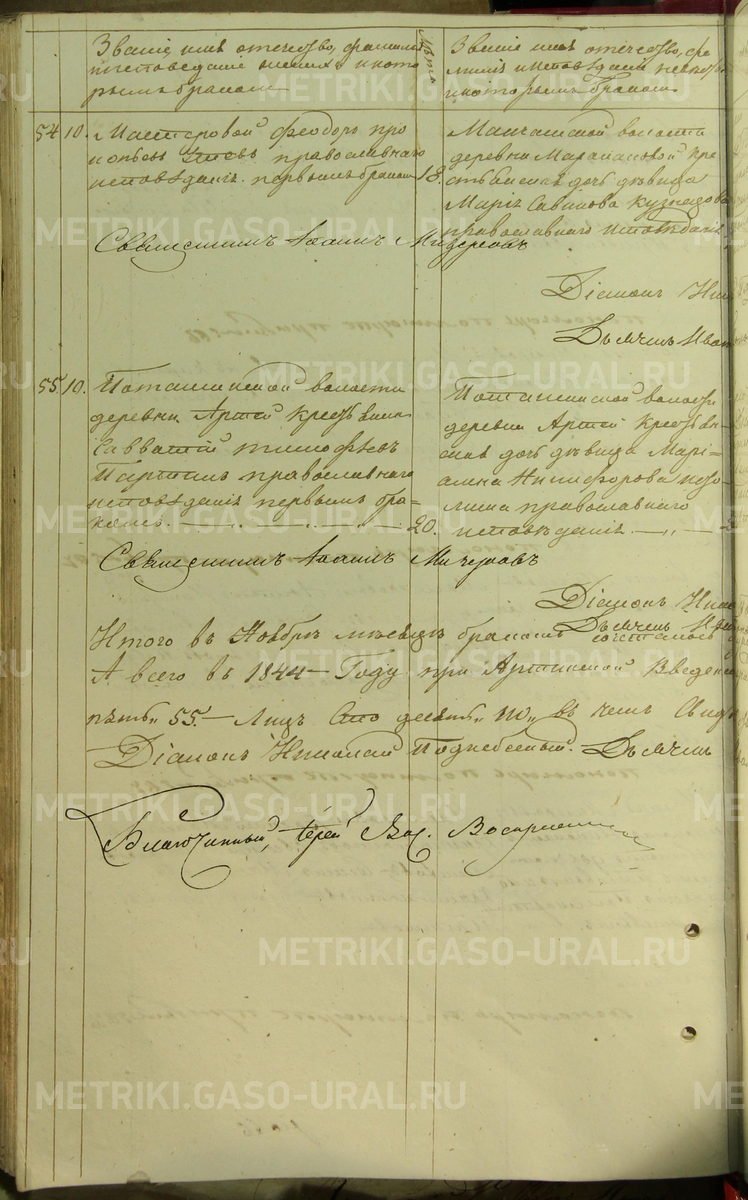 Званіе имя отечество, фамилія
и исповѣданіе жениха и кото
рымъ бракомъ
Лѣта
Званіе имя отечество, фа
милія и исповѣданіе невѣсты
и которымъ бракомъ
54 10. Мастеровой Феодоръ Про
копьевъ православнаго
исповѣданія. первымъ бракомъ 18.
волости
деревни кре
стьянина дочь дѣвица
Марія Савинова Кузнецова
православнаго исповѣданія
Священникъ Іоаннъ
Діаконъ
Дьячекъ Иван
55. 10. Поташинской волости
деревни Артей крестьянинъ
Савватей Тимофѣевъ
православнаго
исповѣданія первымъ бра-
комъ. 20.
Поташинской волости
деревни Артей крестьян-
ина дочь дѣвица Марі-
амна Никифорова
православнаго
исповѣданія
Священникъ Іоаннъ
Діаконъ Ник
Дьячекъ
Итого въ Ноябрѣ мѣсяцѣ бракомъ сочеталось
А всего въ 1844 Году при Артинской Введен
пять 55. Лицъ Сто десять 110 въ чемъ Свидѣ
Діаконъ Николай Поднебесный. Дьячекъ
Благочинный, Іерей Вас. Воскресенскій
METRIKI.GASO-URAL.RU